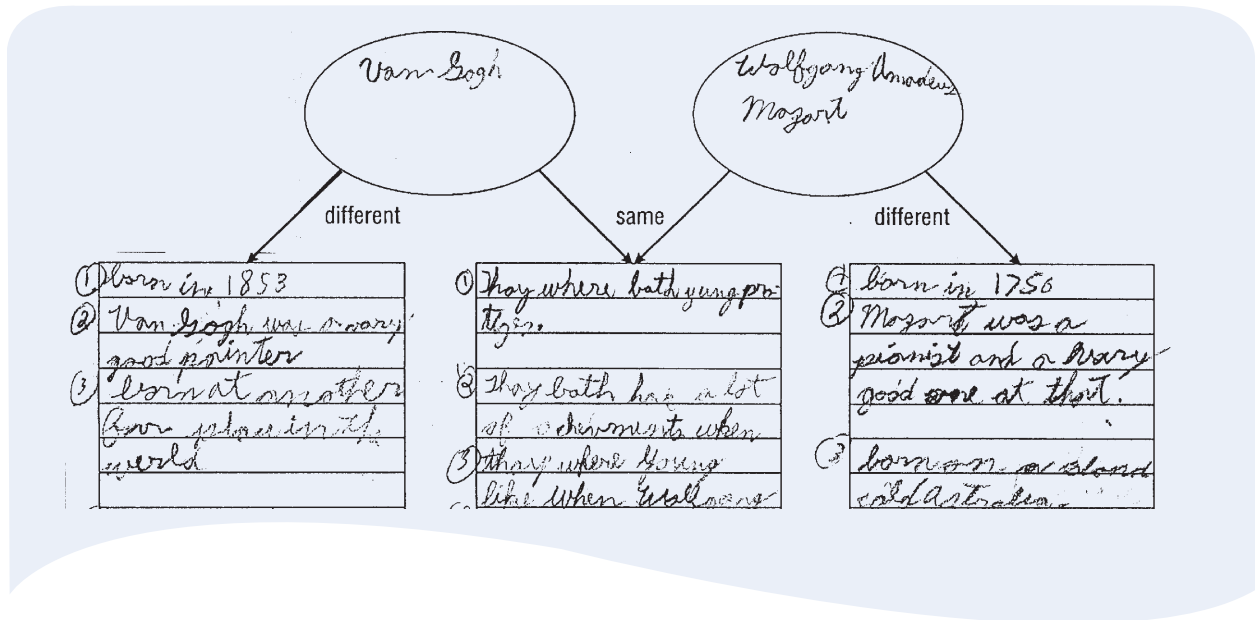 Van Gogh
Wolfgang Amadeus
Mozart
different
same
different
① born in 1853
② Van Gogh was a vary
good painter
③ born at another
place in the
werld
① Thay where bath yung pro-
tiges.
② Thay bath has a lot
of achivments when
③ thay where young
like when Wolfgang
① born in 1756
② Mozart was a
pianist and a vary
good one at that.
③ born on a Island
cald Astralia.